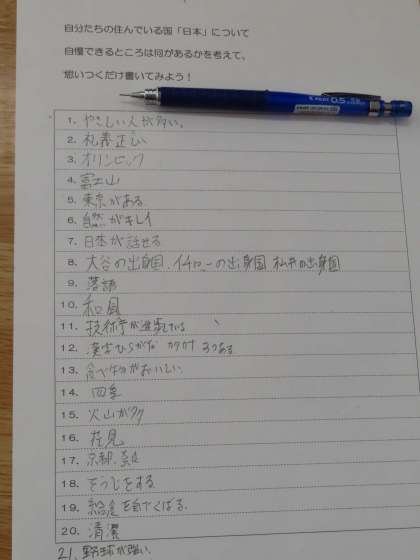 自分たちの住んでいる国「日本」について
自慢できるところは何があるかを考えて、
思いつくだけ書いてみよう！
PILOT 0.5
1. やさしい人が多い。
2. 礼義正しい
3. オリンピック
4. 富士山
5. 東京がある
6. 自然がキレイ
7. 日本が話せる
8. 大谷の出身国 イチローの出身国 松井の出身国
9. 落語
10. 和風
11. 技術が発達している
12. 漢字ひらがな カタカナ 3つある
13. 食べ物がおいしい
14. 四季
15. 火山が
16. 花見
17. 京都、奈良
18. そうじをする
19. 給食を自分でくばる
20. 清潔
21. 野球が強い